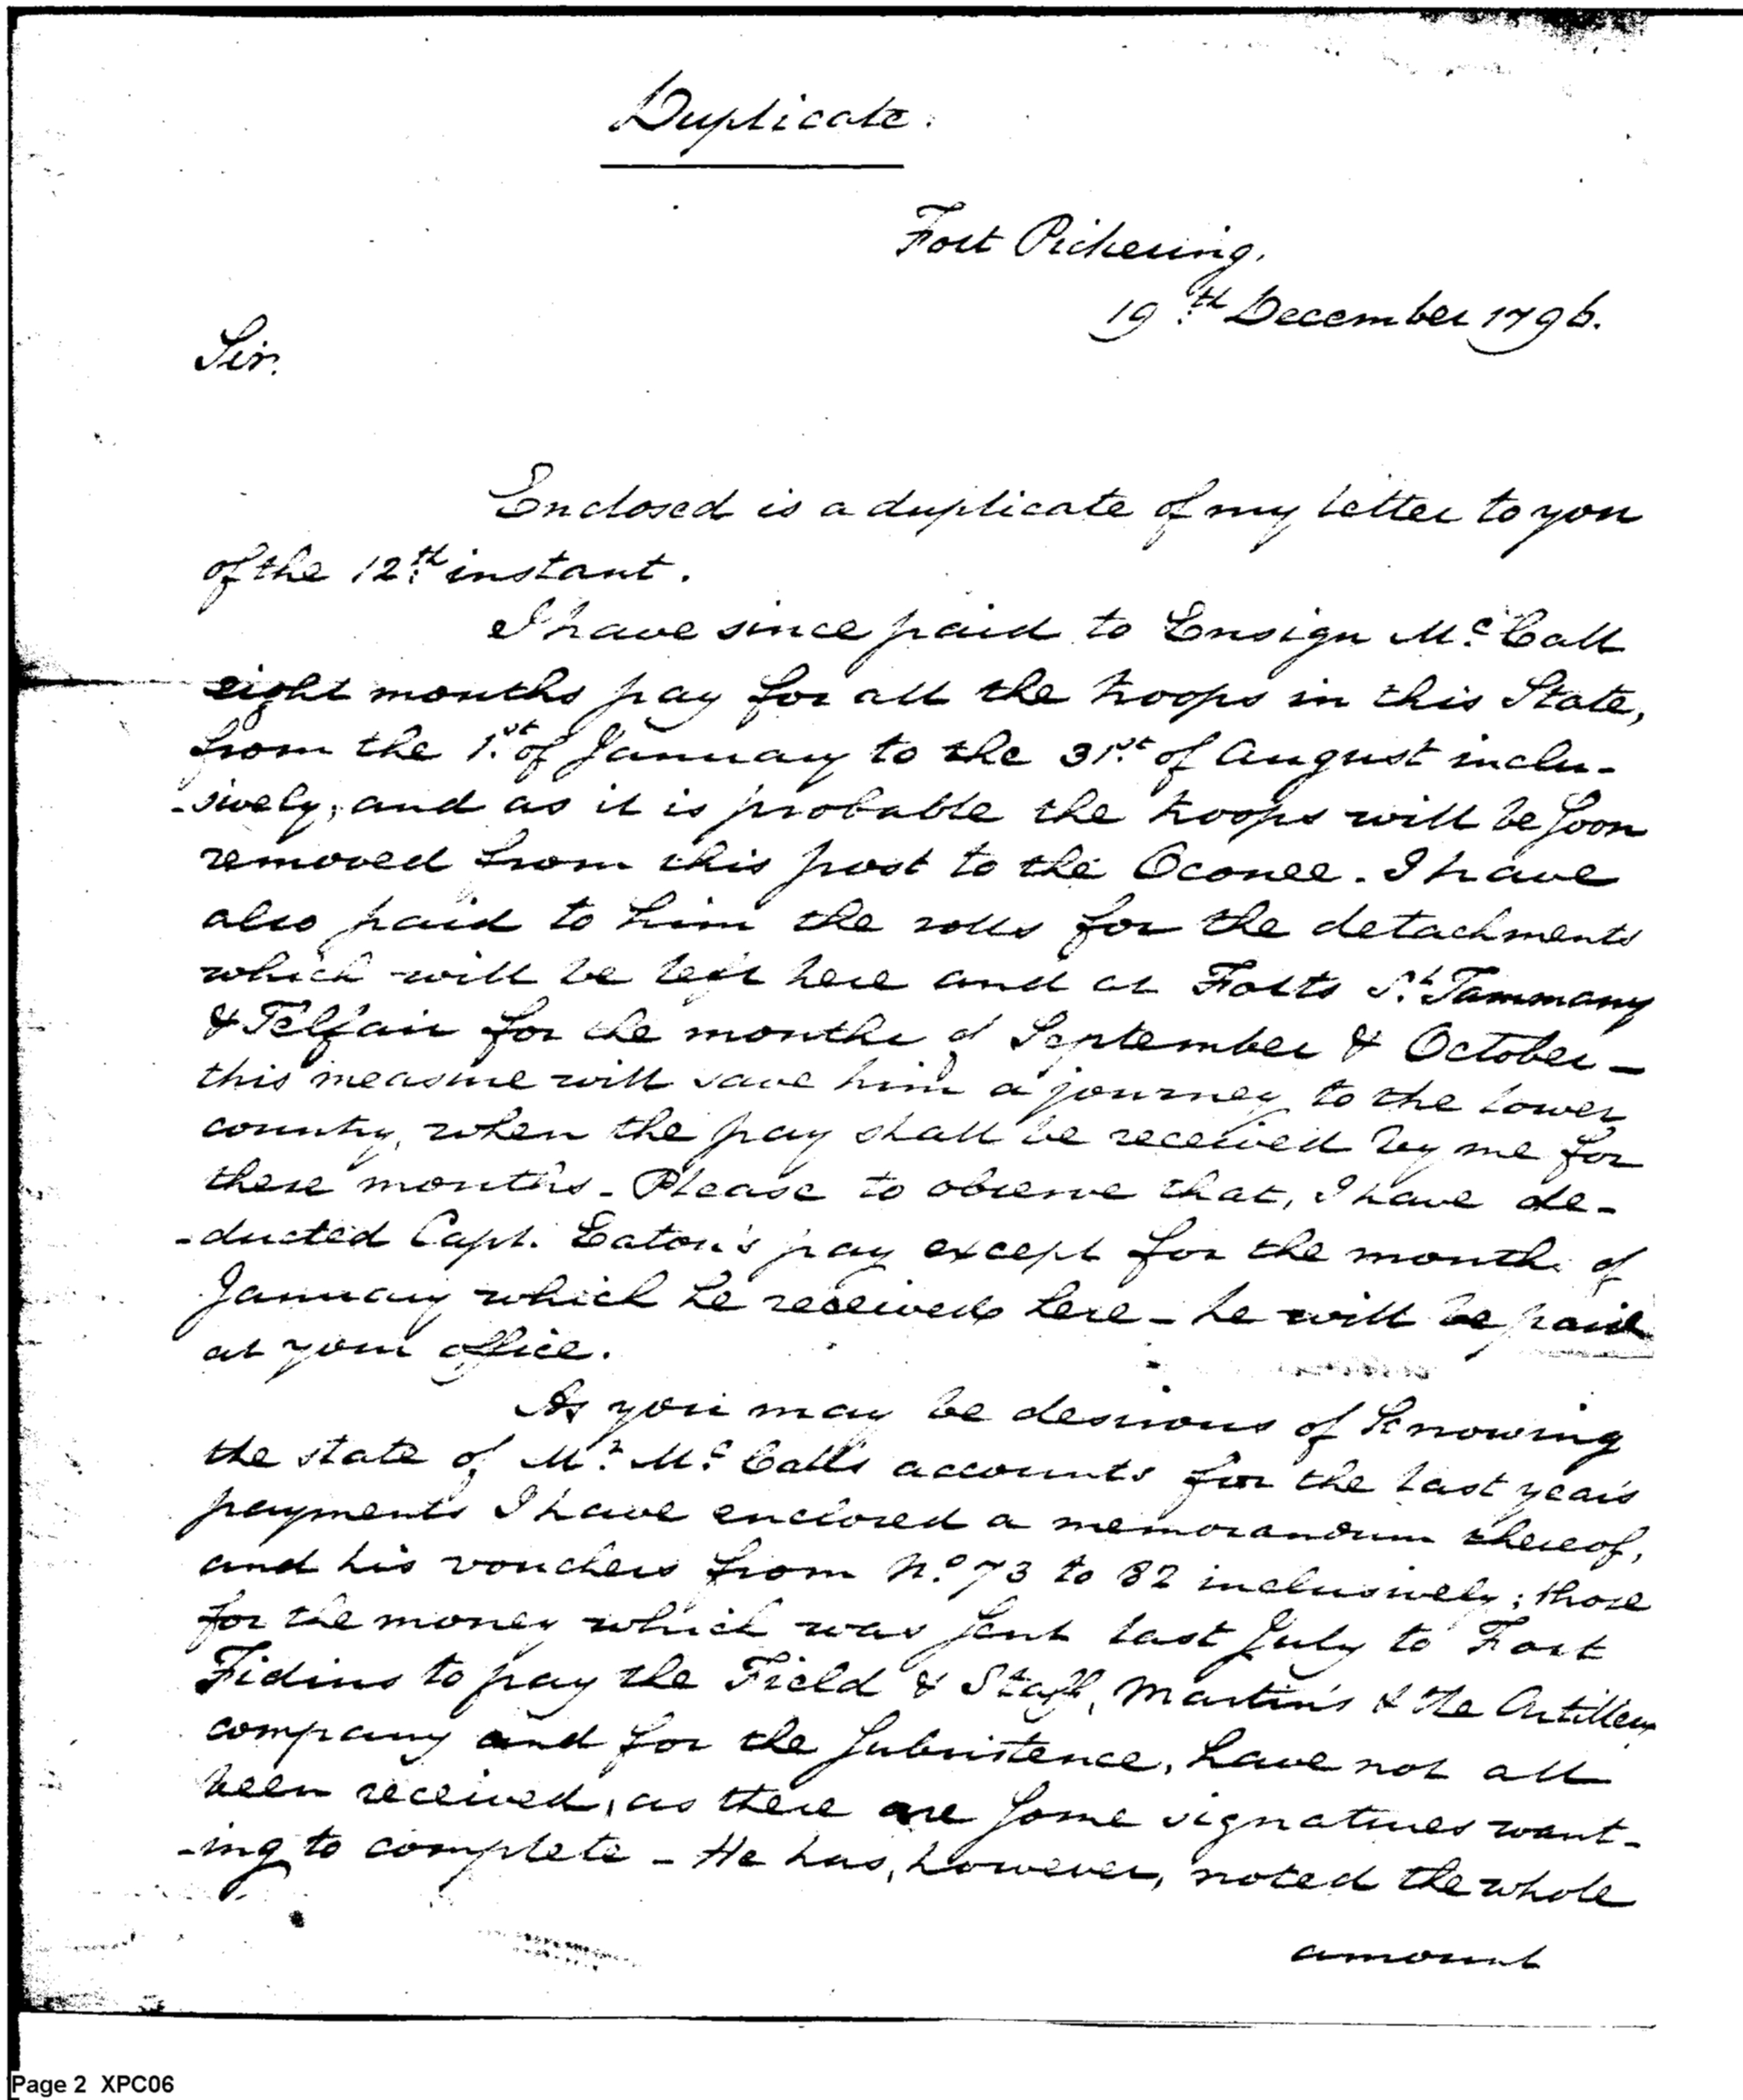 Duplicate.
Fort Pickering,
19th December 1796.
Sir.
Enclosed is a duplicate of my letter to you
of the 12th instant.
I have since paid to Ensign McCall
eight months pay for all the troops in this State,
from the 1st of January to the 31st of August inclu-
-sively, and as it is probable the troops will be soon
removed from this post to the Oconee. I have
also paid to him the rolls for the detachments
which will be left here and at Forts St. Tammany
& Telfair for the months of September & October –
this measure will save him a journey to the lower
country, when the pay shall be received by me for
these months - Please to observe that, I have de-
-ducted Capt. Eaton's pay except for the month of
January which he received here - he will be paid
at your office.
As you may be desirous of knowing
the state of Mr. McCall's accounts for the last year's
payments I have enclosed a memorandum thereof,
and his vouchers from No. 73 to 82 inclusively; those
for the money which was sent last July to Fort
Fidius to pay the Field & Staff, Martin's & the Artillery
company and for the subsistence, have not all
been received, as there are some signatures want-
-ing to complete - He has, however, noted the whole
amount
Page 2 XPC06